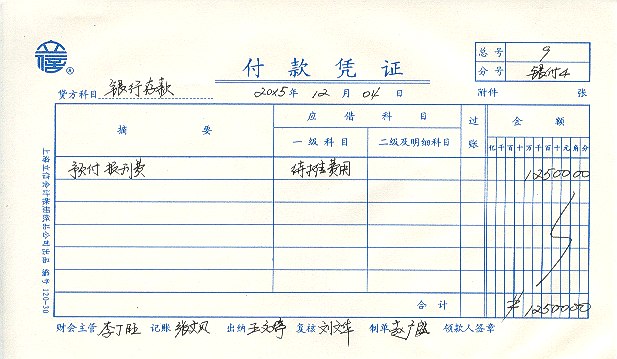 付款凭证
总号 9
分号 银付4
贷方科目 银行存款 2015年 12月 04日 附件 张
摘要 应借科目 过账 金额
一级科目 二级及明细科目 亿千百十万千百十元角分
预付报刊费 待摊费用 1250000
合计 ¥1250000
财会主管 李丁旺 记账 张文风 出纳 王文婷 复核 刘文华 制单 领款人签章
上海立信会计账册纸品公司出品 编号 120-30